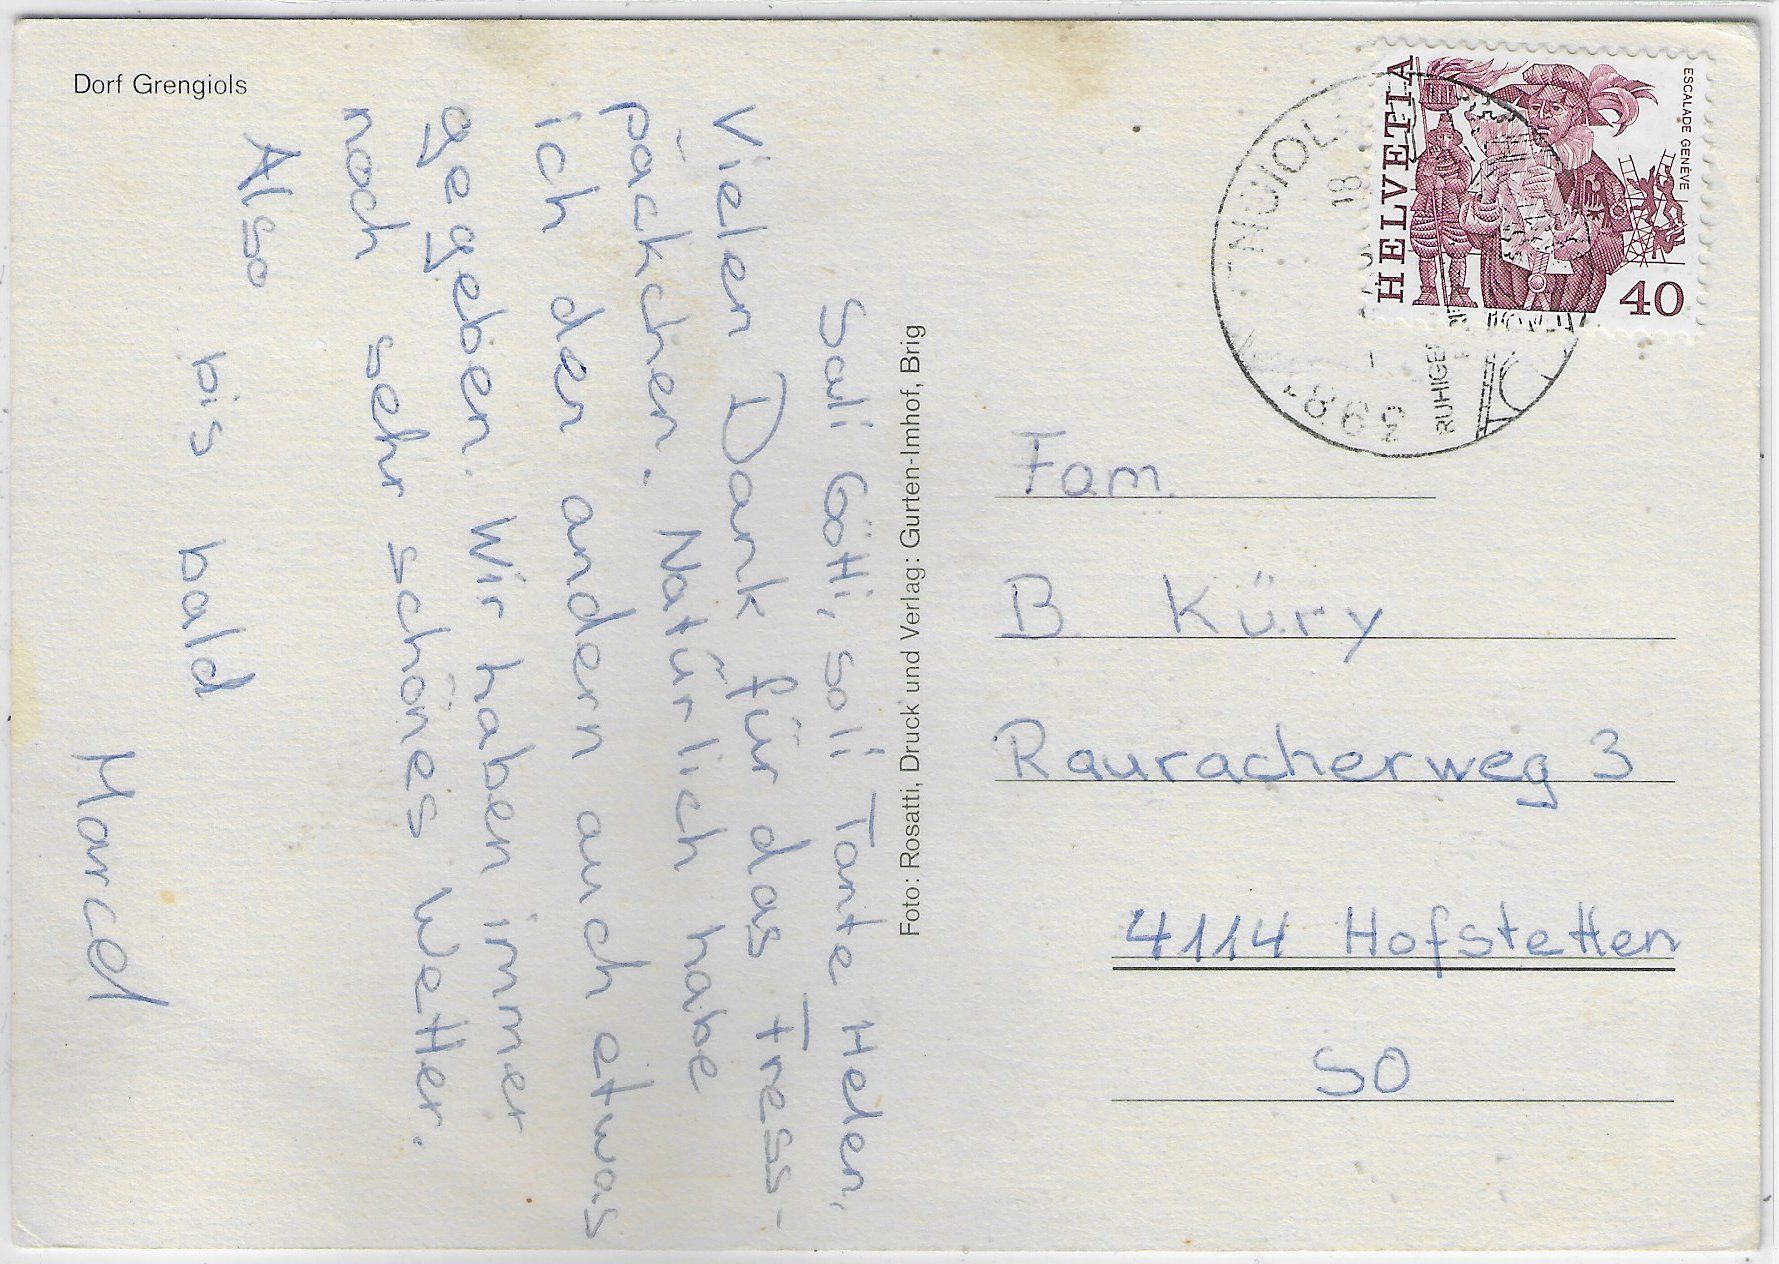 Dorf Grengiols
Sali Götti, soli Tante Helen,
Vielen Dank für das Fress-
päckchen. Natürlich habe
ich den andern auch etwas
gegeben. Wir haben immer
noch sehr schönes Wetter.
Also bis bald
Marcel
Foto: Rosatti, Druck und Verlag: Gurten-Imhof, Brig
ESCALADE GENÈVE
HELVETIA
40
18
RUHIGE
Fam.
B. Küry
Rauracherweg 3
4114 Hofstetten
SO